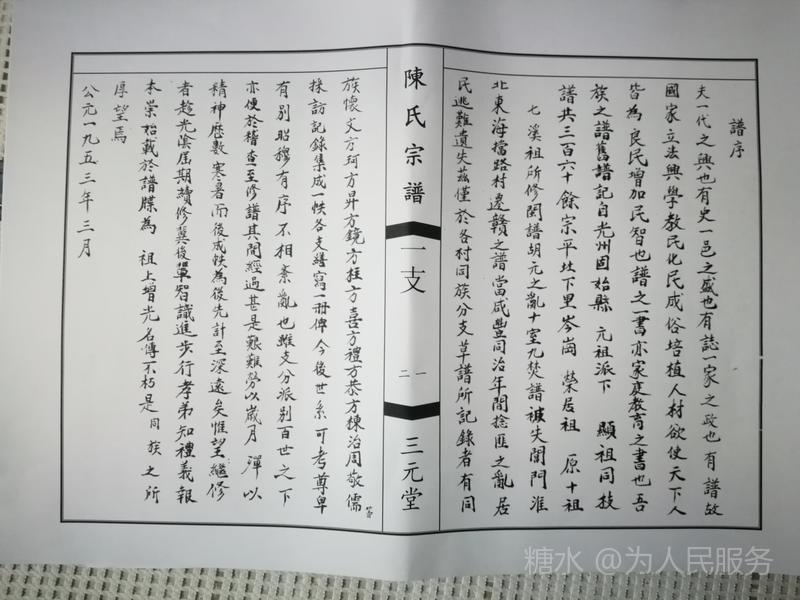 譜序
夫一代之興也有史一邑之盛也有誌一家之政也有譜故
國家立法興學教民化民成俗培植人材欲使天下人
皆為良民增加民智也譜之一書亦家庭教育之書也吾
族之譜舊譜記自光州固始縣 元祖派下 顯祖同技
譜共三百六十餘宗平坟下里岑崗 榮居祖 原十祖
七溪祖所修閤譜胡元之亂十室九焚譜被失闔門淮
北東海擋路村邊贛之譜當咸豐同治年間捻匪之亂居
民逃難遺失茲僅於各村同族分支草譜所記錄者有同
陳氏宗譜
一支
一
二
三元堂
族懷文方珂方昇方鏡方柱方喜方禮方恭方棟治周敬儒等
採訪記錄集成一帙各支繕寫一冊俾今後世系可考尊卑
有別昭穆有序不相紊亂也雖支分派別百世之下
亦便於稽查至修譜其間經過甚是艱難勞以歲月 殫以
精神歷數寒暑而後成帙為後先計至深遠矣惟望繼修
者趁光陰屆期續修冀後輩智識進步行孝弟知禮義報
本崇始載於譜牒為 祖上增光名傳不朽是同族之所
厚望焉
公元一九五三年三月
糖水 @为人民服务